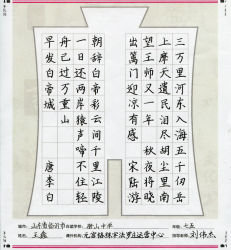 三万里河东入海五千仞岳
上摩天遗民泪尽胡尘里南
望王师又一年 秋夜将晓
出篱门迎凉有感 宋陆游
朝辞白帝彩云间千里江陵
一日还两岸猿声啼不住轻
舟已过万重山
早发白帝城 唐李白
山东省临沂市 中学 年级: 七五
姓名: 王 元宫格练字法罗庄运营中心 刘伟杰